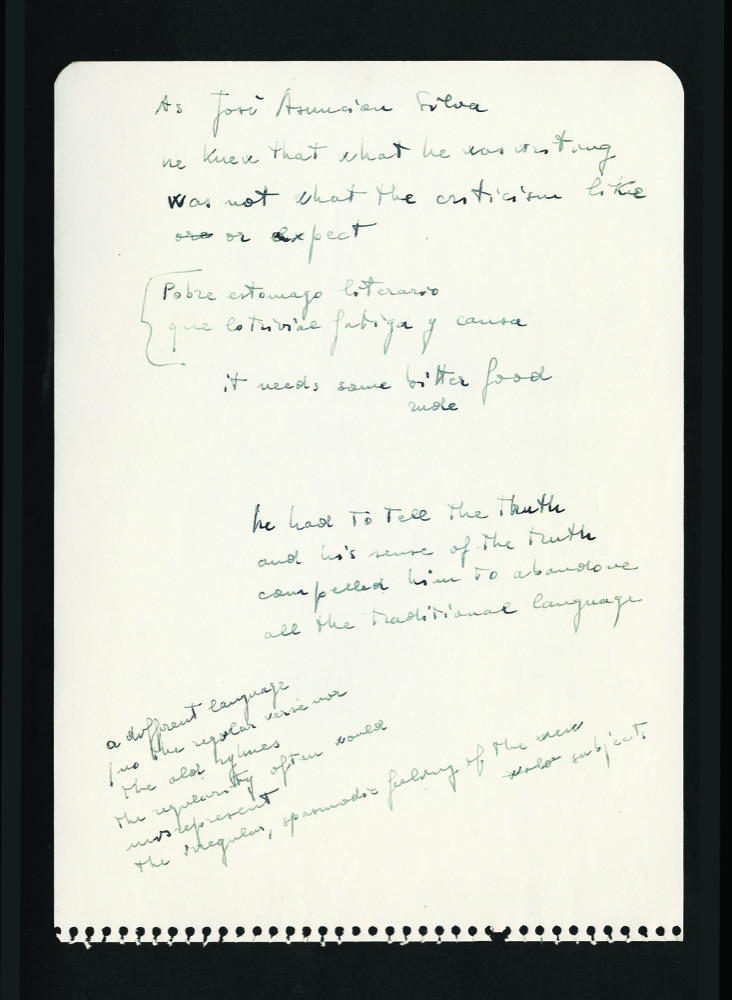 As José Asuncion Silva
he knew that what he was writing
was not what the criticism like
ore or expect
Pobre estomago literario
que lo trivial fatiga y cansa
it needs some bitter food
rude
he had to tell the truth
and his sense of the truth
compelled him to abandone
all the traditional language
a different language
no the regular verse nor
the old rhymes
the regularity often would
misrepresent
the irregular, spasmodic feeling of the new
subjects